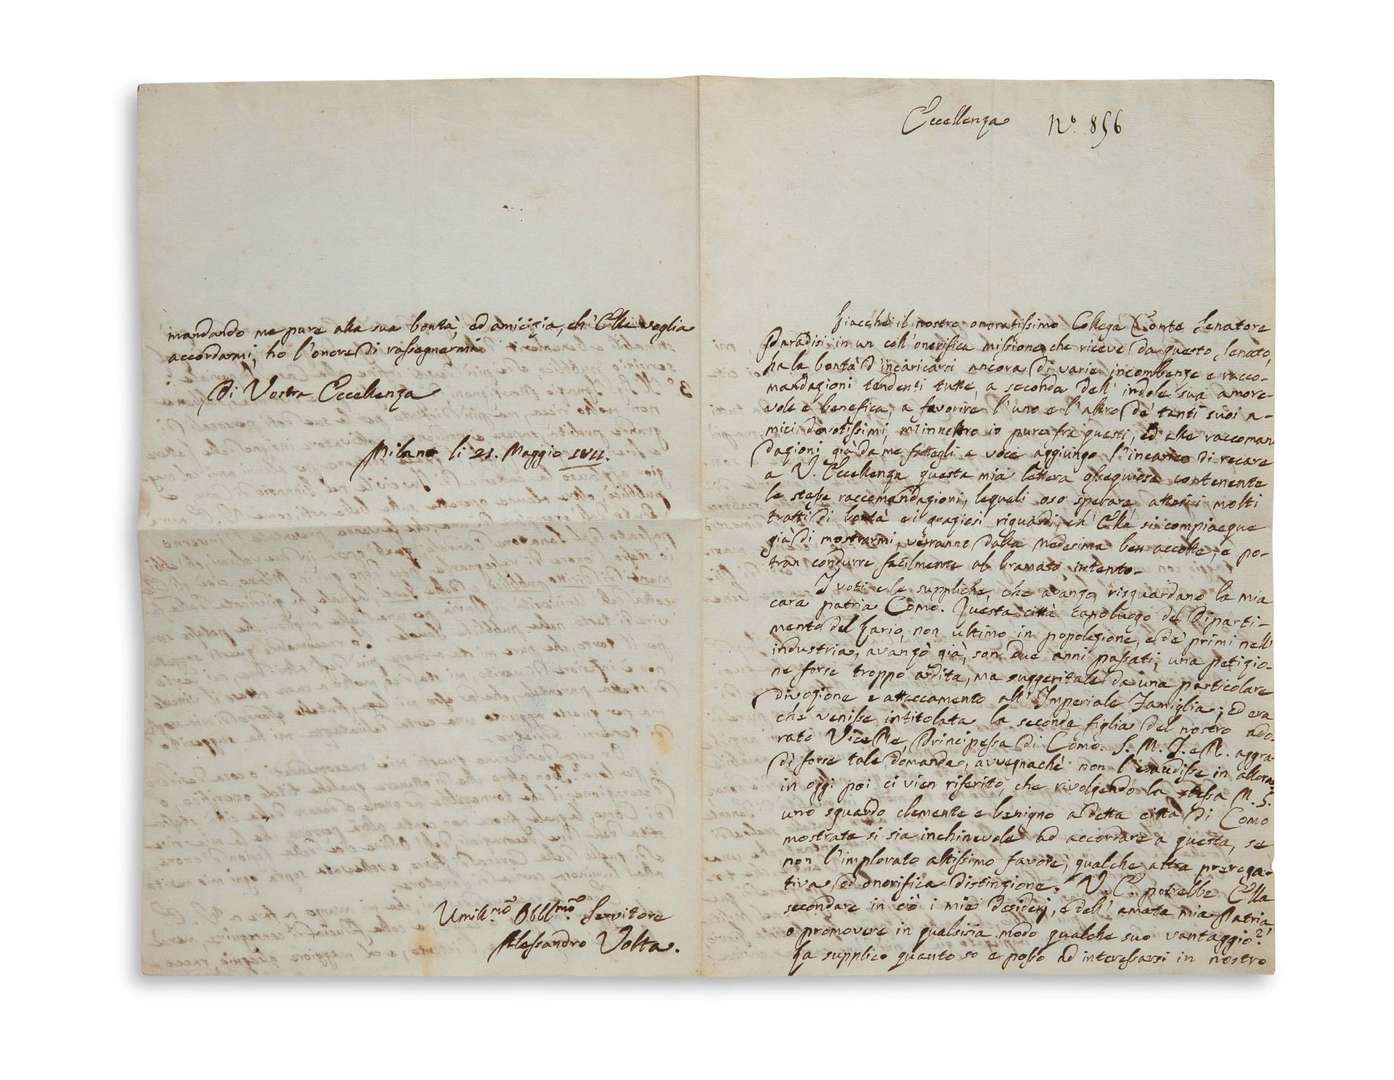 Eccellenza N.º 856
Giacchè il nostro onoratissimo Collega Conte Senatore
Paradisi in un così onorifica missione che riceve da questo Senato,
ha la bontà d'incaricarsi ancora di varie incombenze e racco-
mandazioni tendenti tutte, a seconda dell' indole sua amore-
vole e benefica, a favorire l'uno e l'altro de' tanti suoi a-
mici devotissimi, m'innestro io pure fra questi, ed alle raccoman
dazioni già da me fattegli a voce aggiungo l'incarico di recare
a V. Eccellenza questa mia lettera ossequiosa contenente
le stesse raccomandazioni, lequali oso sperare, attesi i molti
tratti di bontà e i graziosi riguardi, ch' Ella si compiacque
già di mostrarmi, verranno dalla medesima ben accolte, e po-
tran condurre facilmente al bramato intento.
I voti e le suppliche, che avanzo, risguardano la mia
cara patria Como. Questa città capoluogo del Diparti-
mento del Lario, non ultimo in popolazione, e de' primi nell'
industria, avanzò già, son due anni passati, una petizio-
ne forse troppo ardita, ma suggeritale da una particolare
divozione e attaccamento all' Imperiale Famiglia; ed era
che venisse intitolata la seconda figlia del nostro ado-
rato ViceRe, Principessa di Como. S. M. I. e R. aggra-
dì forse tale domanda, avvegnachè non l'esaudisse in allora:
in oggi poi ci vien riferito, che rivolgendo la stessa M. S.
uno sguardo clemente e benigno a detta città di Como
mostrata si sia inchinevole ad accordare a questa, se
non l'implorato altissimo favore, qualche altra preroga-
tiva, ed onorifica distinzione. V. E. potrebbe Ella
secondare in ciò i miei desiderj, e dell' amata mia Patria
o promovere in qualsisia modo qualche suo vantaggio?
La supplico quanto so e posso ad interessarsi in nostro
mandando me pure alla sua bontà, ed amicizia, ch' Ella voglia
accordarmi, ho l'onore di rassegnarmi
Di Vostra Eccellenza
Milano li 21. Maggio 1811.
Umil.mo Obbl.mo Servitore
Alessandro Volta.